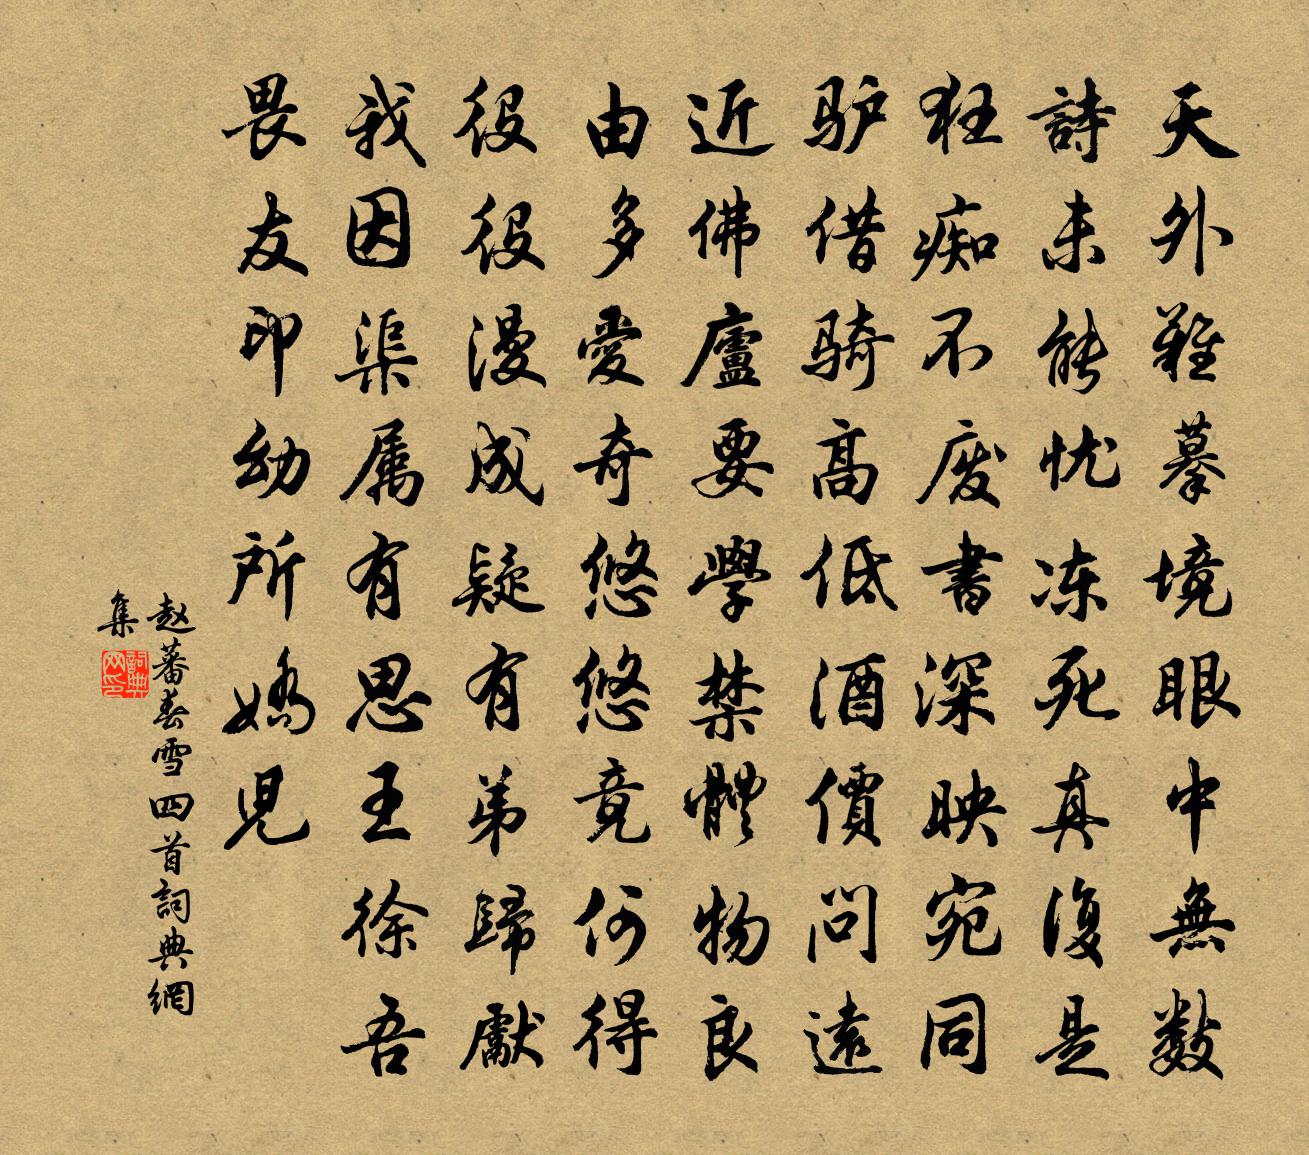 天外難摹境眼中無数
詩未能忧冻死真復是
狂痴不废書深映宛同
驴借骑高低酒價問遠
近佛廬要學禁體物良
由多愛奇悠悠竟何得
役役漫成疑有弟歸獻
我因渠属有思王徐吾
畏友印幼所嬌児
赵蕃春雪四首詞典網
集
詞典
网印